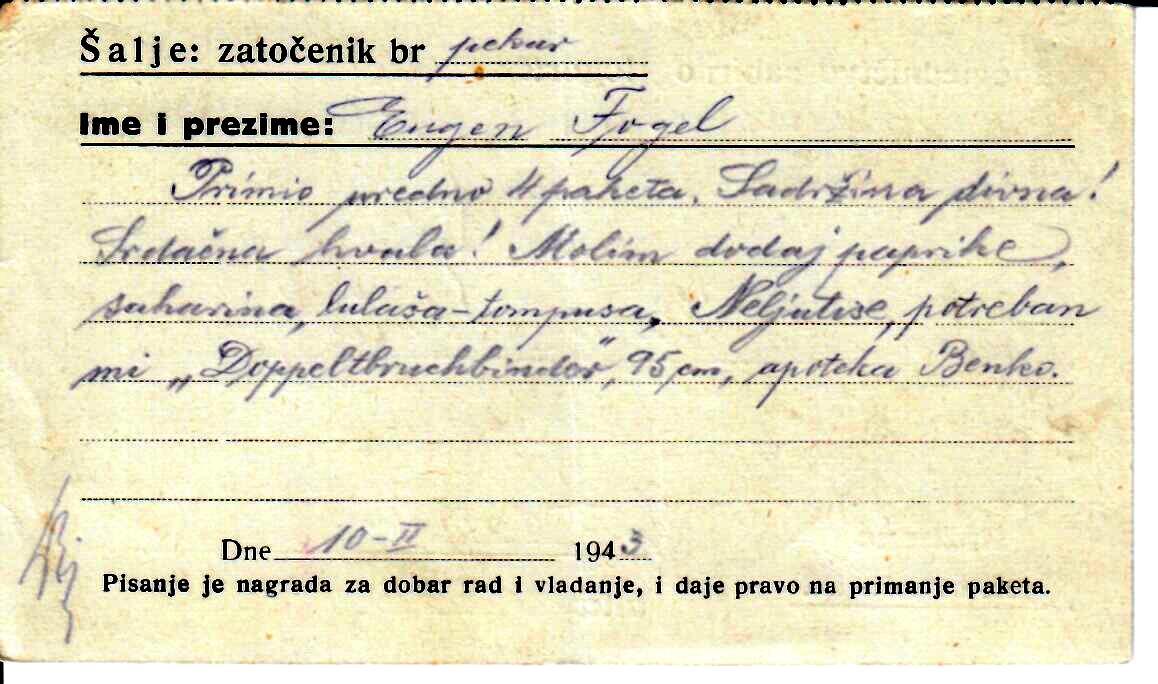 Šalje: zatočenik br pekar
Ime i prezime: Eugen Fogel
Primio uredno 4 paketa. Sadržina divna!
Srdačna hvala! Molim dodaj paprike,
saharina, lulaša-tompusa. Neljutise, potreban
mi „Doppeltbruchbinder", 95 cm, apoteka Benko.
Dne 10-II 1943
Pisanje je nagrada za dobar rad i vladanje, i daje pravo na primanje paketa.